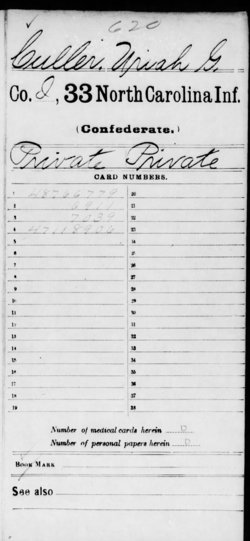 620
Culler, Uriah G.
Co. I, 33 North Carolina Inf.
(Confederate.)
Private Private
CARD NUMBERS.
1 48766779 20
2 6911 21
3 7039 22
4 47118906 23
5 24
6 25
7 26
8 27
9 28
10 29
11 30
12 31
13 32
14 33
15 34
16 35
17 36
18 37
19 38
Number of medical cards herein 0
Number of personal papers herein 0
BOOK MARK
See also